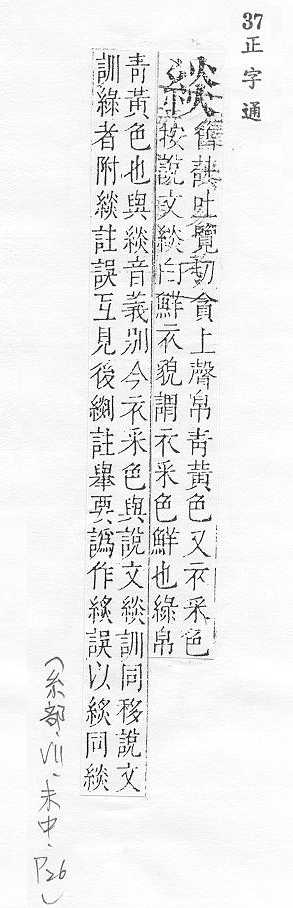 37
正字通
緂
舊註吐覽切貪上聲帛靑黃色又衣采色
按說文緂白鮮衣貌謂衣采色鮮也綠帛
靑黃色也與緂音義別今衣采色與說文緂訓同移說文
訓綠者附緂註誤互見後緅註舉要譌作緂誤以緂同緂
(糸部、VII、未中、P26)